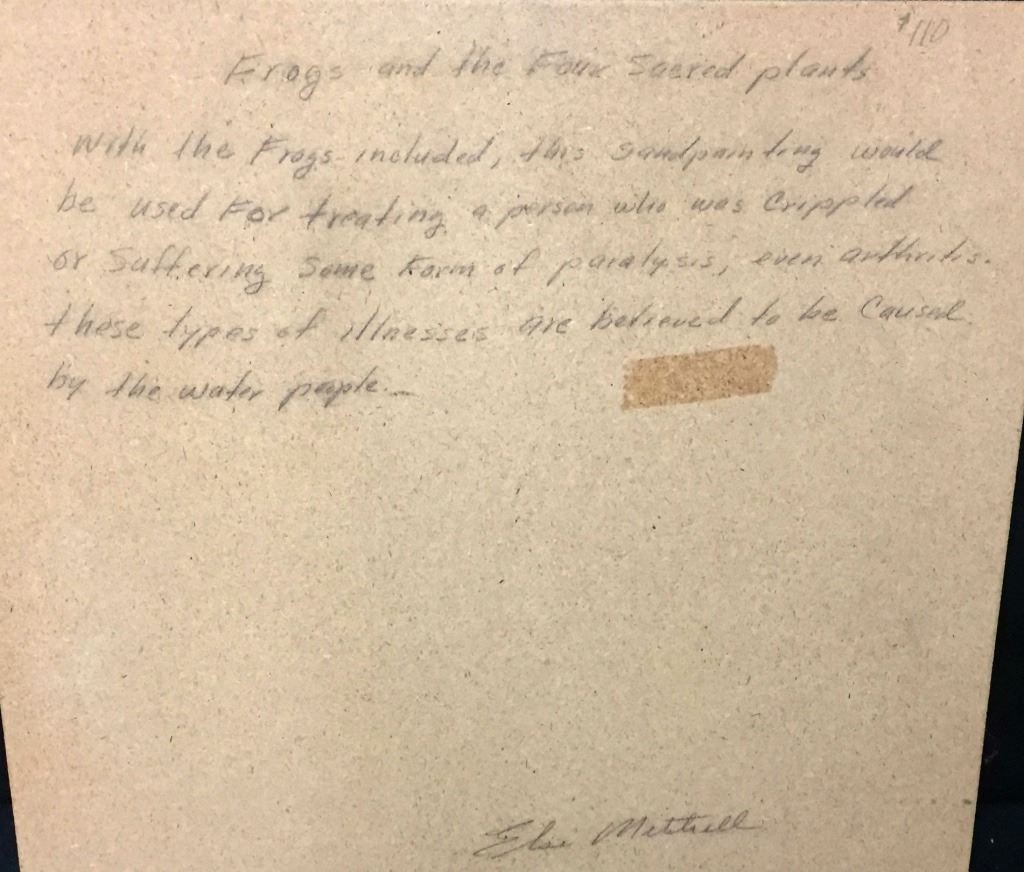 $110
Frogs and the Four Sacred plants
With the Frogs included, this sandpainting would
be used For treating a person who was Crippled
or Suffering Some Form of paralysis, even arthritis.
these types of illnesses are believed to be Caused
by the water people.
Mitchell